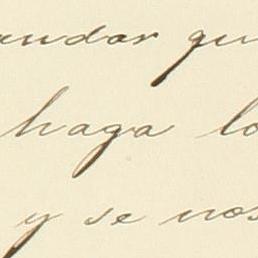 andar qu
haga lo
y se nos